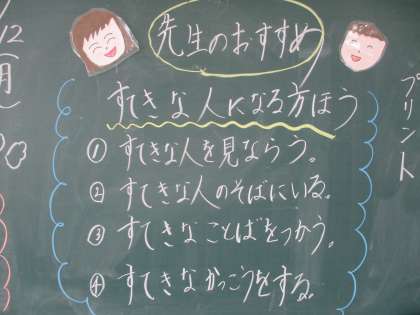 /12
(月)
先生のおすすめ
すてきな人になる方ほう
① すてきな人を見ならう。
② すてきな人のそばにいる。
③ すてきなことばをつかう。
④ すてきなかっこうをする。
プリント